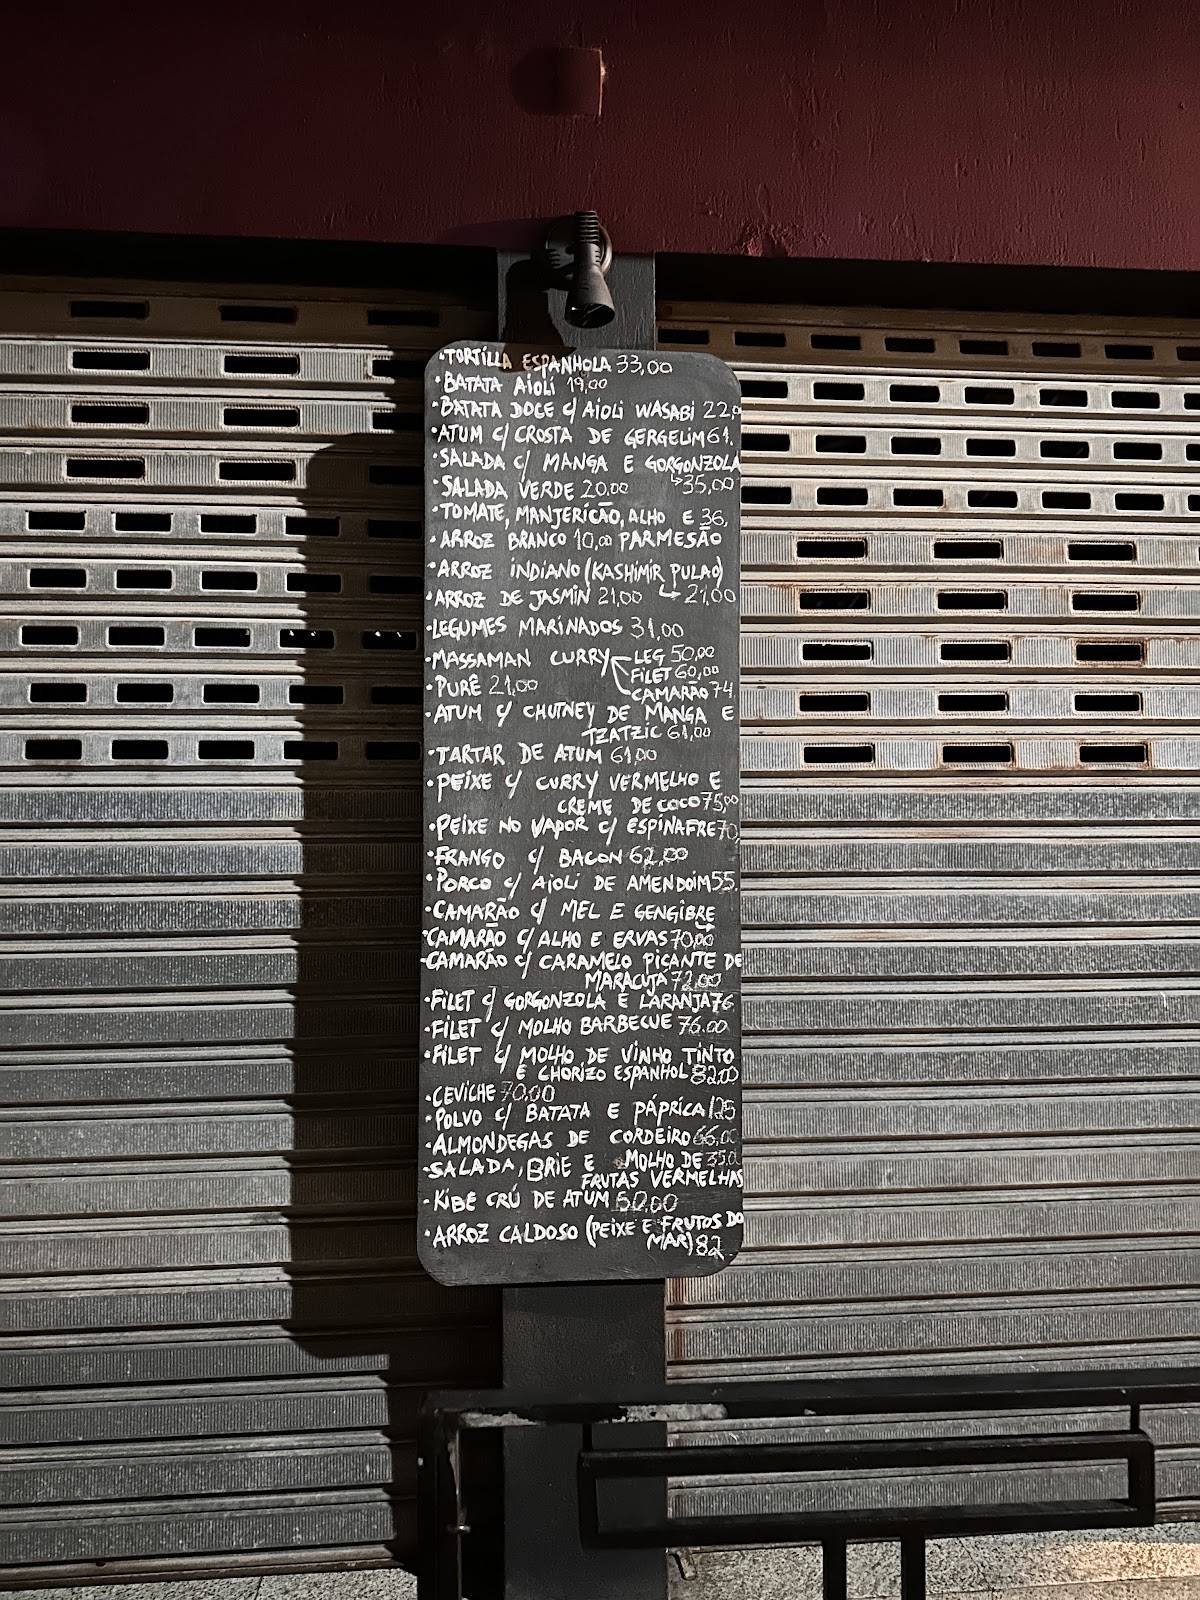 ·TORTILLA ESPANHOLA 33,00
·BATATA AIOLI 19,00
·BATATA DOCE C/ AIOLI WASABI 22,00
·ATUM C/ CROSTA DE GERGELIM 61,
·SALADA C/ MANGA E GORGONZOLA
↳35,00
·SALADA VERDE 20,00
·TOMATE, MANJERICÃO, ALHO E 36,
PARMESÃO
·ARROZ BRANCO 10,00
·ARROZ INDIANO (KASHIMIR PULAO)
↳ 21,00
·ARROZ DE JASMIN 21,00
·LEGUMES MARINADOS 31,00
·MASSAMAN CURRY LEG 50,00
FILET 60,00
CAMARÃO 74,
·PURÊ 21,00
·ATUM C/ CHUTNEY DE MANGA E
TZATZIC 61,00
·TARTAR DE ATUM 61,00
·PEIXE C/ CURRY VERMELHO E
CREME DE COCO 75,00
·PEIXE NO VAPOR C/ ESPINAFRE 70,
·FRANGO C/ BACON 62,00
·PORCO C/ AIOLI DE AMENDOIM 55,
·CAMARÃO C/ MEL E GENGIBRE
·CAMARÃO C/ ALHO E ERVAS 70,00
·CAMARÃO C/ CARAMELO PICANTE DE
MARACUJÁ 72,00
·FILET C/ GORGONZOLA E LARANJA 76,
·FILET C/ MOLHO BARBECUE 76,00
·FILET C/ MOLHO DE VINHO TINTO
E CHORIZO ESPANHOL 82,00
·CEVICHE 70,00
·POLVO C/ BATATA E PÁPRICA 125
·ALMONDEGAS DE CORDEIRO 66,00
·SALADA, BRIE E MOLHO DE 35,0
FRUTAS VERMELHAS
·KIBE CRÚ DE ATUM 60,00
·ARROZ CALDOSO (PEIXE E FRUTOS DO
MAR) 82